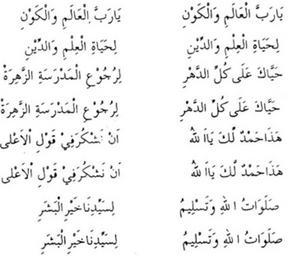 يَارَبَّ الْعَالَمِ وَالْكَوْنِ يَارَبَّ الْعَالَمِ وَالْكَوْنِ
لِحَيَاةِ الْعِلْمِ وَالدِّيْنِ لِحَيَاةِ الْعِلْمِ وَالدِّيْنِ
حَيَّاكَ عَلَى كُلِّ الدَّهْرِ لِرُجُوْعِ الْمَدْرَسَةِ الزَّهِرَةْ
حَيَّاكَ عَلَى كُلِّ الدَّهْرِ لِرُجُوْعِ الْمَدْرَسَةِ الزَّهِرَةْ
هَذَاحَمْدٌ لَكَ يَااَ للهُ اَنْ نَشْكُرَفِيْ قَوْلِ الْاَعْلَى
هَذَاحَمْدٌ لَكَ يَااَ للهُ اَنْ نَشْكُرَفِيْ قَوْلِ الْاَعْلَى
صَلَوَاتُ ا للهِ وَتَسْلِيمُ لِسَيِّدِنَاخَيْرِ الْبَشَرِ
صَلَوَاتُ ا للهِ وَتَسْلِيمُ لِسَيِّدِنَاخَيْرِ الْبَشَرِ